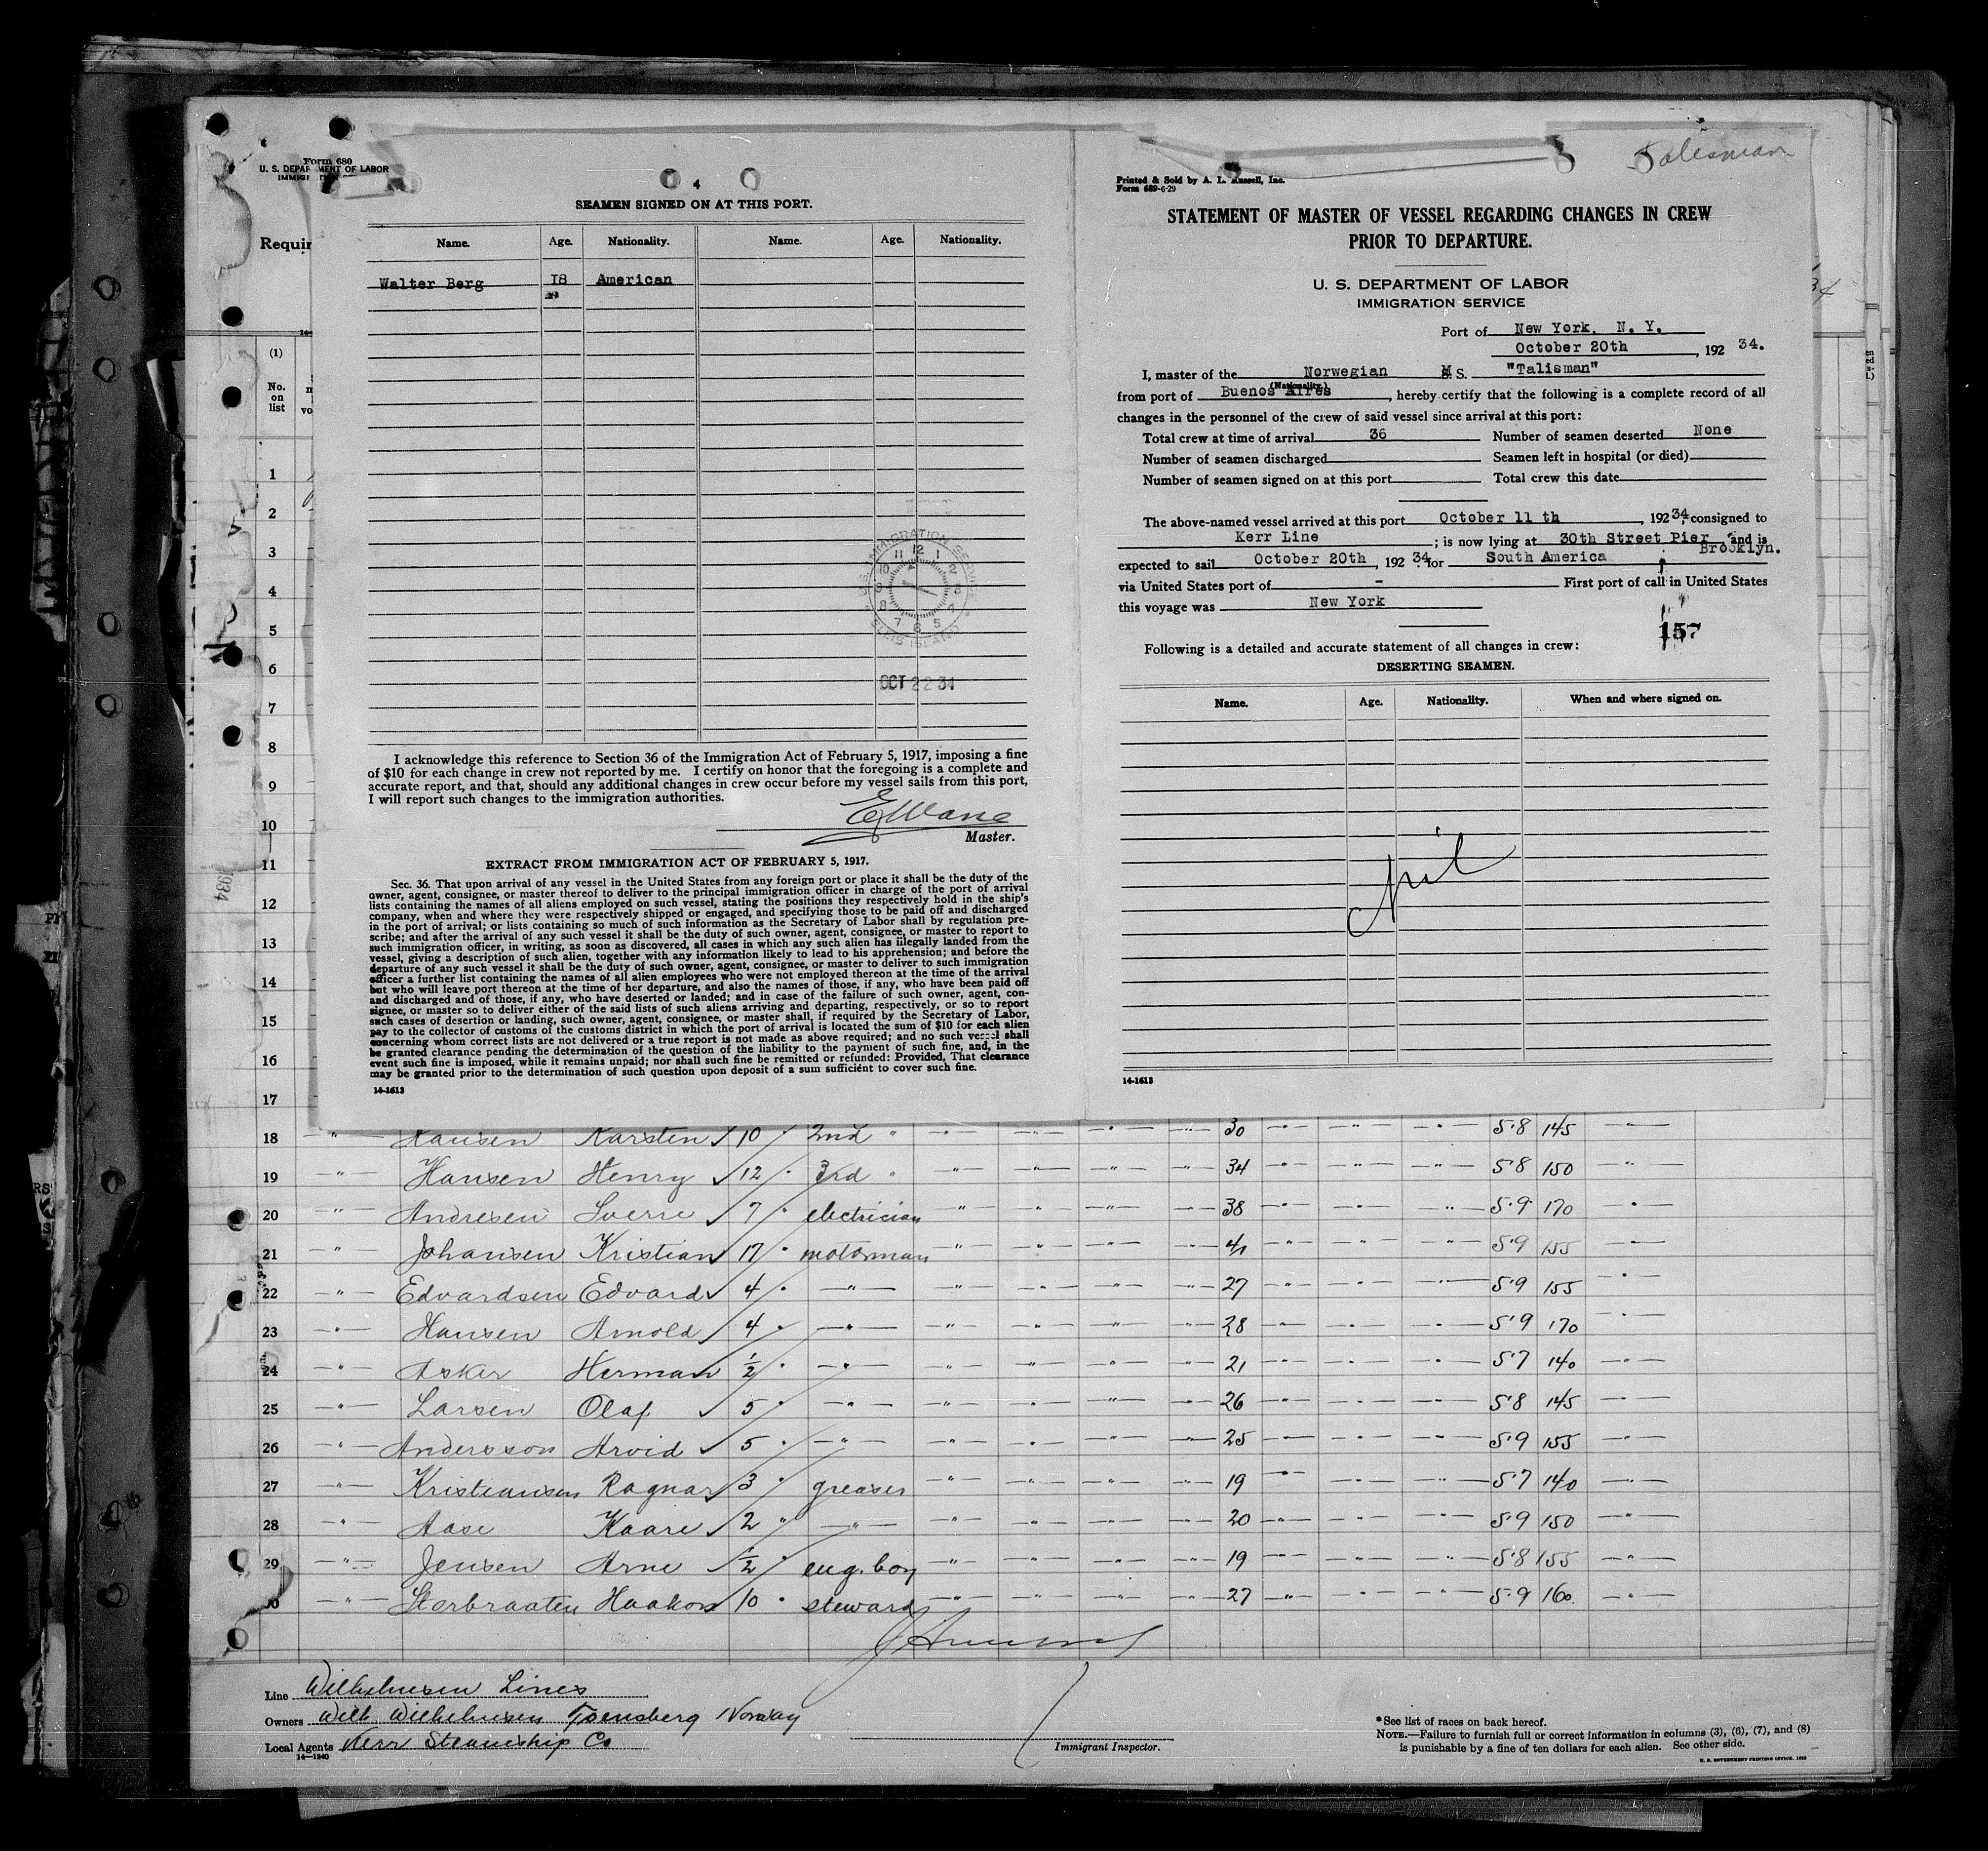 Form 680
U. S. DEPARTMENT OF LABOR
Requir
4
SEAMEN SIGNED ON AT THIS PORT.
Name. Age. Nationality. Name. Age. Nationality.
Walter Berg 18 American
U.S. IMMIGRATION SERVICE
12 1 2 3 4 5 6 7 8 9 10 11
ELLIS ISLAND
OCT 22 34
I acknowledge this reference to Section 36 of the Immigration Act of February 5, 1917, imposing a fine
of $10 for each change in crew not reported by me. I certify on honor that the foregoing is a complete and
accurate report, and that, should any additional changes in crew occur before my vessel sails from this port,
I will report such changes to the immigration authorities.
Master.
EXTRACT FROM IMMIGRATION ACT OF FEBRUARY 5, 1917.
Sec. 36. That upon arrival of any vessel in the United States from any foreign port or place it shall be the duty of the
owner, agent, consignee, or master thereof to deliver to the principal immigration officer in charge of the port of arrival
lists containing the names of all aliens employed on such vessel, stating the positions they respectively hold in the ship's
company, when and where they were respectively shipped or engaged, and specifying those to be paid off and discharged
in the port of arrival; or lists containing so much of such information as the Secretary of Labor shall by regulation pre-
scribe; and after the arrival of any such vessel it shall be the duty of such owner, agent, consignee, or master to report to
such immigration officer, in writing, as soon as discovered, all cases in which any such alien has illegally landed from the
vessel, giving a description of such alien, together with any information likely to lead to his apprehension; and before the
departure of any such vessel it shall be the duty of such owner, agent, consignee, or master to deliver to such immigration
officer a further list containing the names of all alien employees who were not employed thereon at the time of the arrival
but who will leave port thereon at the time of her departure, and also the names of those, if any, who have been paid off
and discharged and of those, if any, who have deserted or landed; and in case of the failure of such owner, agent, con-
signee, or master so to deliver either of the said lists of such aliens arriving and departing, respectively, or so to report
such cases of desertion or landing, such owner, agent, consignee, or master shall, if required by the Secretary of Labor,
pay to the collector of customs of the customs district in which the port of arrival is located the sum of $10 for each alien
concerning whom correct lists are not delivered or a true report is not made as above required; and no such vessel shall
be granted clearance pending the determination of the question of the liability to the payment of such fine, and, in the
event such fine is imposed, while it remains unpaid; nor shall such fine be remitted or refunded: Provided, That clearance
may be granted prior to the determination of such question upon deposit of a sum sufficient to cover such fine.
14-1613
Talisman
Printed & Sold by A. L. Russell, Inc.
Form 689-6-29
STATEMENT OF MASTER OF VESSEL REGARDING CHANGES IN CREW
PRIOR TO DEPARTURE.
U. S. DEPARTMENT OF LABOR
IMMIGRATION SERVICE
Port of New York, N. Y.
October 20th, 192 34.
I, master of the Norwegian M.S. "Talisman"
(Nationality.)
from port of Buenos Aires, hereby certify that the following is a complete record of all
changes in the personnel of the crew of said vessel since arrival at this port:
Total crew at time of arrival 36 Number of seamen deserted None
Number of seamen discharged Seamen left in hospital (or died)
Number of seamen signed on at this port Total crew this date
The above-named vessel arrived at this port October 11 th, 192 34, consigned to
Kerr Line; is now lying at 30th Street Pier, and is
Brooklyn.
expected to sail October 20th, 192 34. for South America
via United States port of - First port of call in United States
this voyage was New York
157
Following is a detailed and accurate statement of all changes in crew:
DESERTING SEAMEN.
Name. Age. Nationality. When and where signed on.
nil
14-1613
(1)
No.
on
list
1
2
3
4
5
6
7
8
9
10
11
12
13
14
15
16
17
18 " Hansen Karsten 10 2nd " " " " " 30 " " " 5'8 145 "
19 " Hansen Henry 12 3rd " " " " " 34 " " " 5'8 150 "
20 " Andresen Sverre 7 electrician " " " " 38 " " " 5'9 170 "
21 " Johansen Kristian 17 motorman " " " " 41 " " " 5'9 155 "
22 " Edvardsen Edvard 4 " " " " " 27 " " " 5'9 155 "
23 " Hansen Arnold 4 " " " " " 28 " " " 5'9 170 "
24 " Asker Herman 1/2 " " " " " 21 " " " 5'7 140 "
25 " Larsen Olaf 5 " " " " " 26 " " " 5'8 145 "
26 " Andersson Arvid 5 " " " " " 25 " " " 5'9 155 "
27 " Kristiansen Ragnar 3 greaser " " " " 19 " " " 5'7 140 "
28 " Aase Kaare 2 " " " " " 20 " " " 5'9 150 "
29 " Jensen Arne 1/2 eng. boy " " " " 19 " " " 5'8 155 "
30 " Storbraaten Haakon 10 steward " " " " 27 " 5'9 160 "
Line Wilhelmsen Lines
Owners Wilh. Wilhelmsen Toensberg Norway
Local Agents Kerr Steamship Co
14-1240
Immigrant Inspector.
*See list of races on back hereof.
NOTE.—Failure to furnish full or correct information in columns (3), (6), (7), and (8)
is punishable by a fine of ten dollars for each alien. See other side.
U. S. GOVERNMENT PRINTING OFFICE
1934